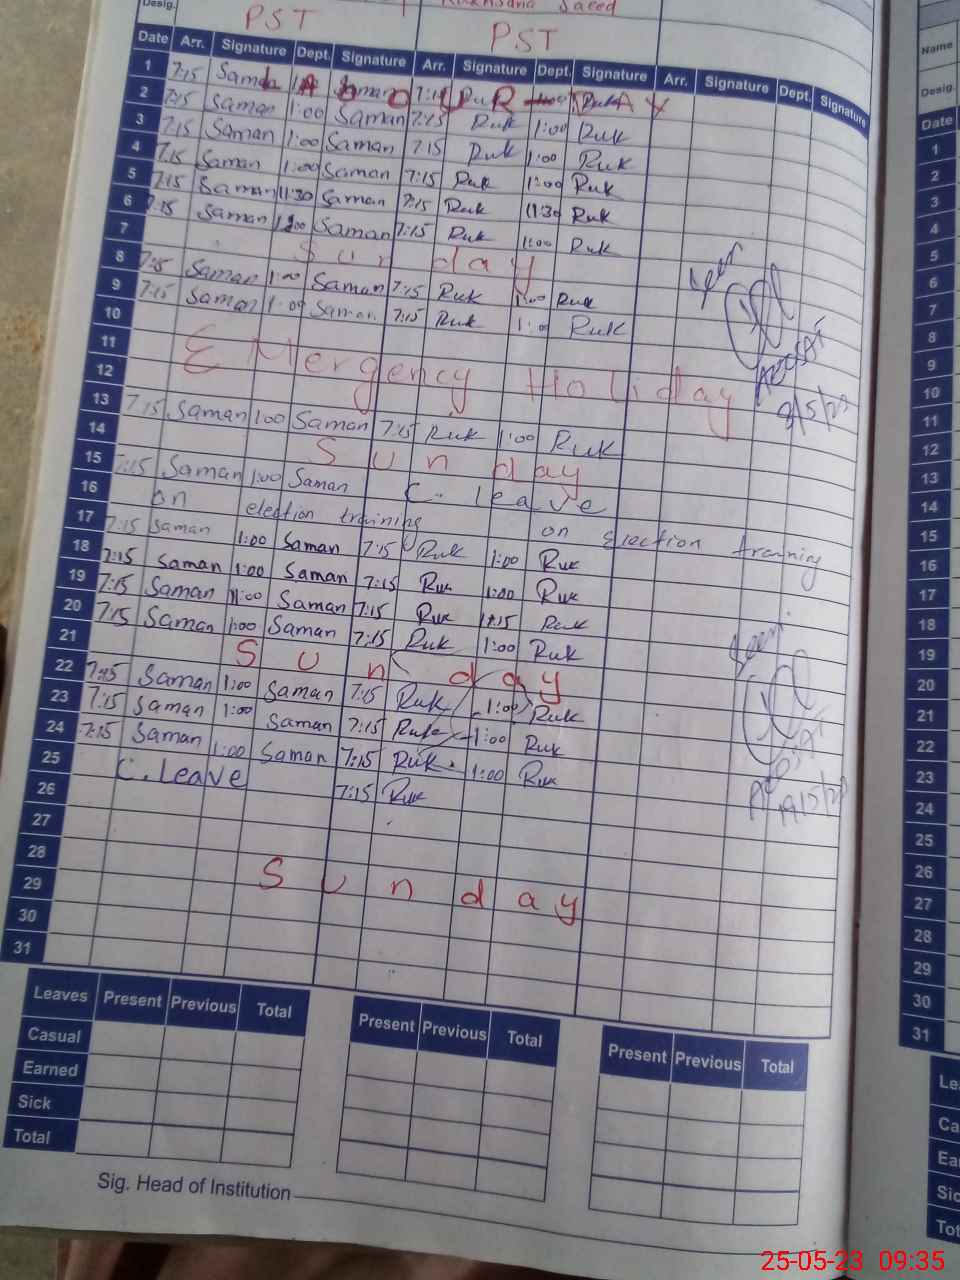 Desig.
Saeed
PST PST
Date Arr. Signature Dept. Signature Arr. Signature Dept. Signature Arr. Signature Dept. Signature
1 7:15 Saman Ruk
LABOUR DAY
2 7:15 Saman 1:00 Saman 7:15 Ruk 1:00 Ruk
3 7:15 Saman 1:00 Saman 7:15 Ruk 1:00 Ruk
4 7:15 Saman 1:00 Saman 7:15 Ruk 1:00 Ruk
5 7:15 Saman 11:30 Saman 7:15 Ruk 11:30 Ruk
6 7:15 Saman 1:00 Saman 7:15 Ruk 1:00 Ruk
7 Sunday
8 7:15 Saman 1:00 Saman 7:15 Ruk 1:00 Ruk
9 7:15 Saman 1:00 Saman 7:15 Ruk 1:00 Ruk
10
11 EMergency Holiday
12
13 7:15 Saman 1:00 Saman 7:15 Ruk 1:00 Ruk
14 Sunday
15 7:15 Saman 1:00 Saman C. leave
16 on election training on Election training
17 7:15 Saman 1:00 Saman 7:15 Ruk 1:00 Ruk
18 7:15 Saman 1:00 Saman 7:15 Ruk 1:00 Ruk
19 7:15 Saman 11:00 Saman 7:15 Ruk 11:15 Ruk
20 7:15 Saman 1:00 Saman 7:15 Ruk 1:00 Ruk
21 Sunday
22 7:15 Saman 1:00 Saman 7:15 Ruk 1:00 Ruk
23 7:15 Saman 1:00 Saman 7:15 Ruk 1:00 Ruk
24 7:15 Saman 1:00 Saman 7:15 Ruk 1:00 Ruk
25 C. Leave 7:15 Ruk
26
27
28 Sunday
29
30
31
Seen
9/5/23
Seen
19/5/23
Leaves Present Previous Total Present Previous Total Present Previous Total
Casual
Earned
Sick
Total
Sig. Head of Institution
Name
Desig.
Date
1
2
3
4
5
6
7
8
9
10
11
12
13
14
15
16
17
18
19
20
21
22
23
24
25
26
27
28
29
30
31
25-05-23 09:35